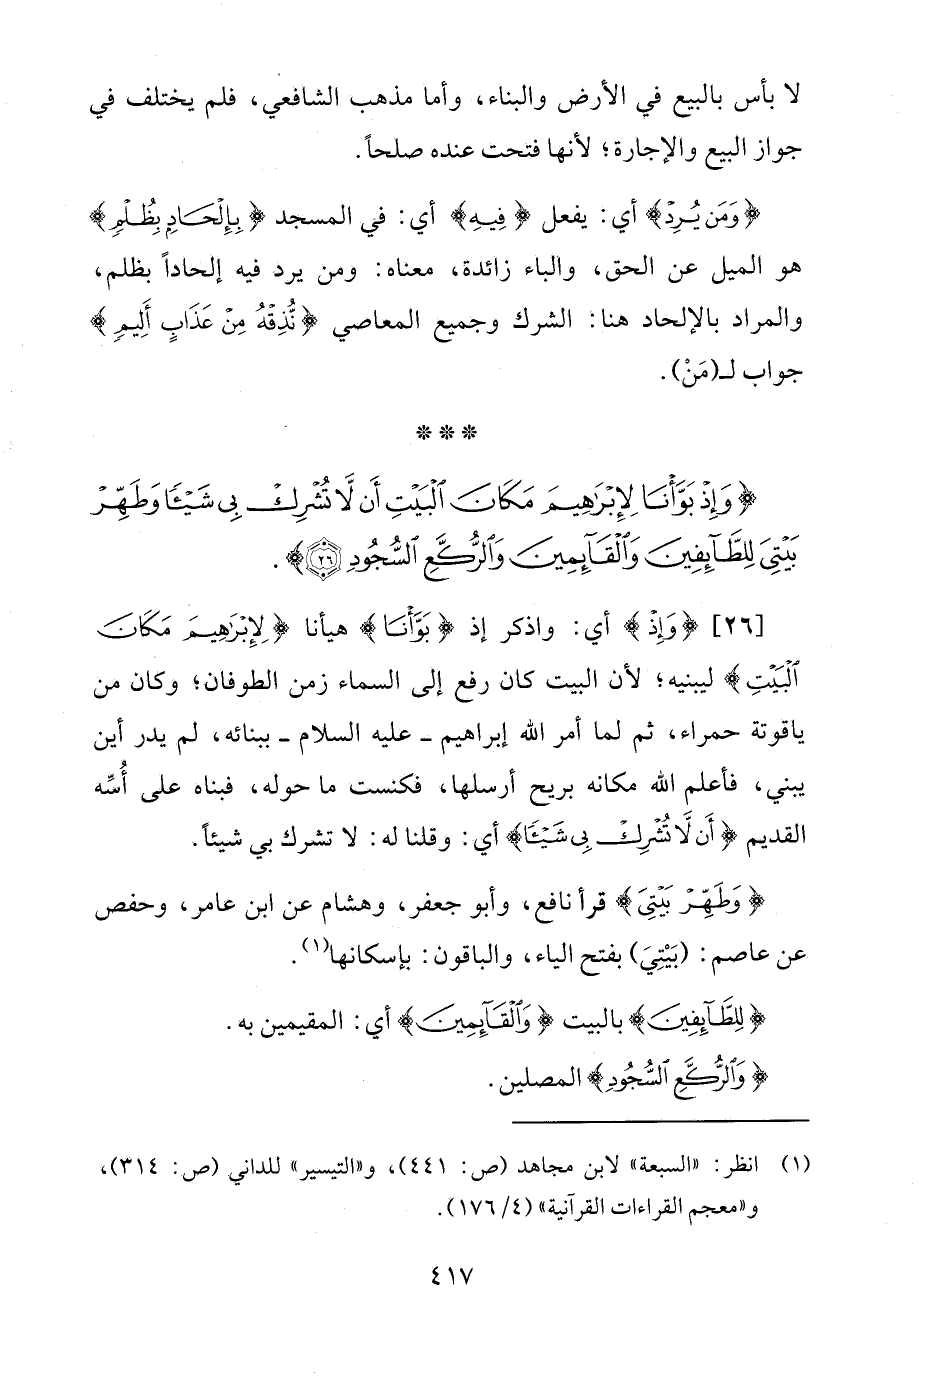 لا بأس بالبيع في الأرض والبناء، وأما مذهب الشافعي، فلم يختلف في
جواز البيع والإجارة؛ لأنها فتحت عنده صلحاً.
﴿وَمَن يُرِدْ﴾ أي: يفعل ﴿فِيهِ﴾ أي: في المسجد ﴿بِإِلْحَادٍ بِظُلْمٍ﴾
هو الميل عن الحق، والباء زائدة، معناه: ومن يرد فيه إلحاداً بظلم،
والمراد بالإلحاد هنا: الشرك وجميع المعاصي ﴿نُّذِقْهُ مِنْ عَذَابٍ أَلِيمٍ﴾
جواب لـ(مَنْ).
***
﴿وَإِذْ بَوَّأْنَا لِإِبْرَٰهِيمَ مَكَانَ ٱلْبَيْتِ أَن لَّا تُشْرِكْ بِى شَيْـًٔا وَطَهِّرْ
بَيْتِىَ لِلطَّآئِفِينَ وَٱلْقَآئِمِينَ وَٱلرُّكَّعِ ٱلسُّجُودِ ٢٦﴾.
[٢٦] ﴿وَإِذْ﴾ أي: واذكر إذ ﴿بَوَّأْنَا﴾ هيأنا ﴿لِإِبْرَٰهِيمَ مَكَانَ
ٱلْبَيْتِ﴾ ليبنيه؛ لأن البيت كان رفع إلى السماء زمن الطوفان؛ وكان من
ياقوتة حمراء، ثم لما أمر الله إبراهيم ـ عليه السلام ـ ببنائه، لم يدر أين
يبني، فأعلم الله مكانه بريح أرسلها، فكنست ما حوله، فبناه على أُسِّه
القديم ﴿أَن لَّا تُشْرِكْ بِى شَيْـًٔا﴾ أي: وقلنا له: لا تشرك بي شيئاً.
﴿وَطَهِّرْ بَيْتِىَ﴾ قرأ نافع، وأبو جعفر، وهشام عن ابن عامر، وحفص
عن عاصم: (بَيْتِيَ) بفتح الياء، والباقون: بإسكانها(١).
﴿لِلطَّآئِفِينَ﴾ بالبيت ﴿وَٱلْقَآئِمِينَ﴾ أي: المقيمين به.
﴿وَٱلرُّكَّعِ ٱلسُّجُودِ﴾ المصلين.
(١) انظر: «السبعة» لابن مجاهد (ص: ٤٤١)، و«التيسير» للداني (ص: ٣١٤)،
و«معجم القراءات القرآنية» (٤/ ١٧٦).
٤١٧